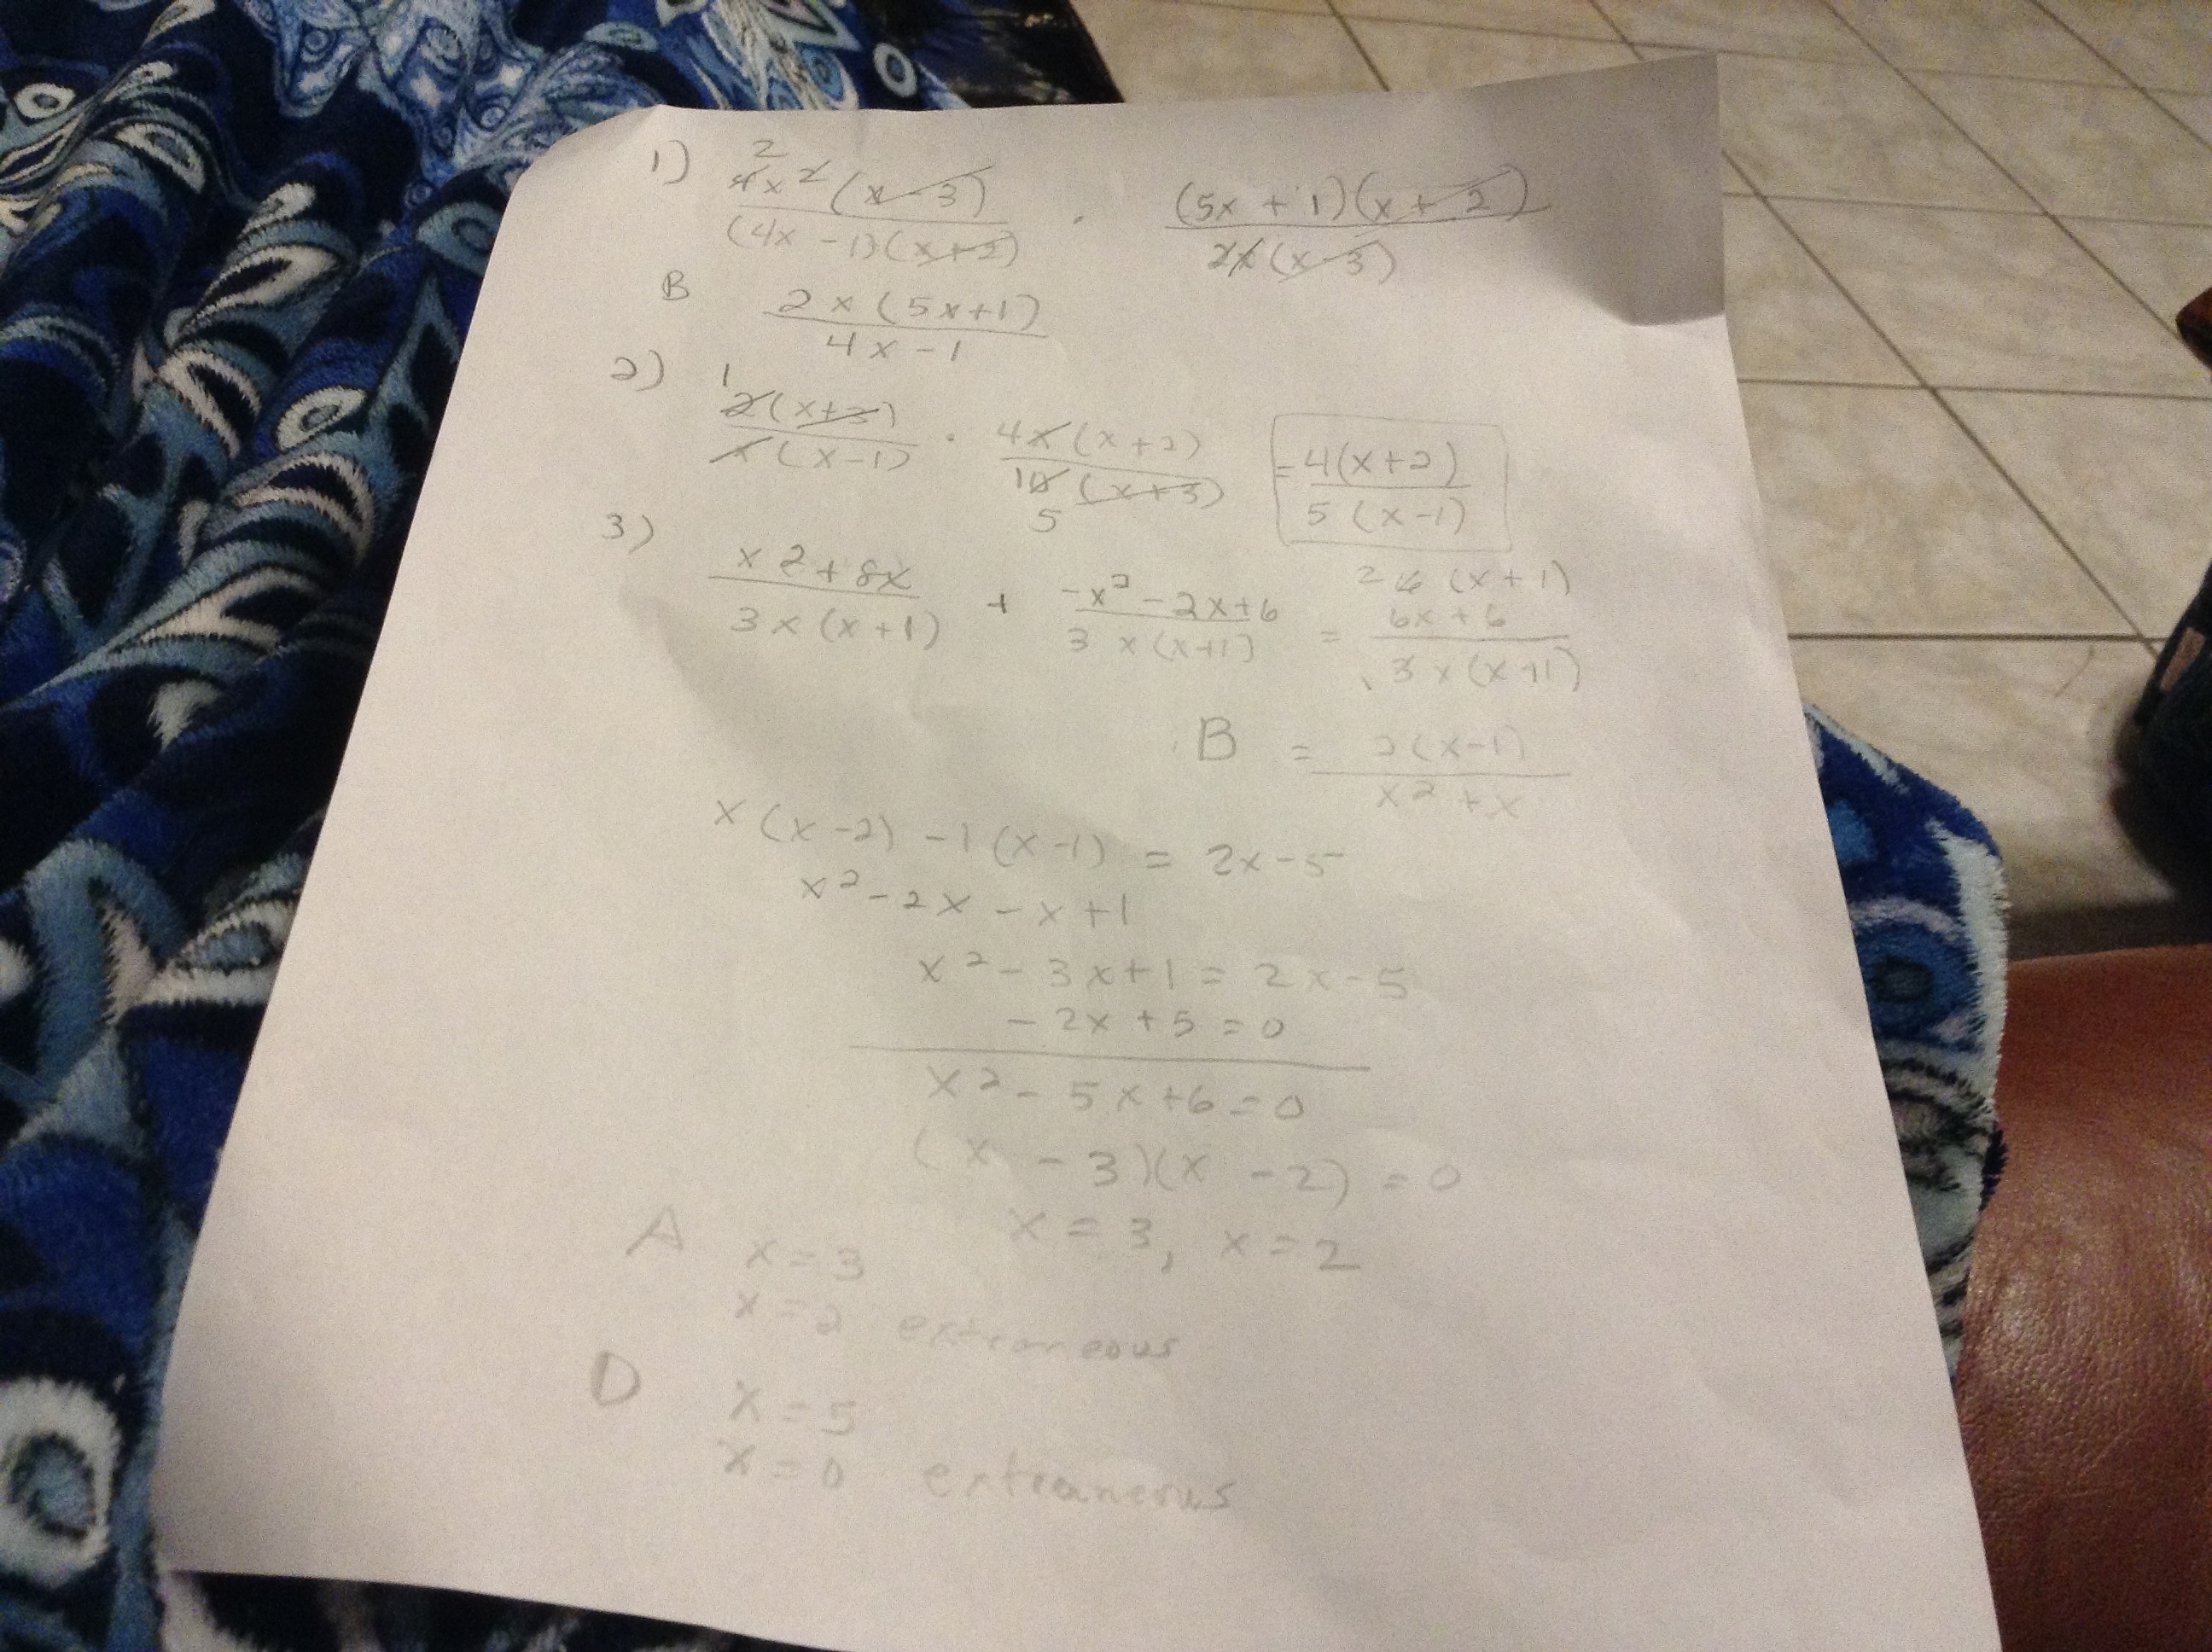 1) 2
4x² (x-3) · (5x + 1)(x + 2)
(4x - 1)(x+2) 2x (x-3)
B 2x (5x+1)
4x - 1
2) 1
2(x+3) · 4x (x+2) = 4(x+2)
x (x-1) 10 (x+3) 5 (x-1)
5
3)
2 6 (x+1)
x2 + 8x + -x² - 2x+6 = 6x + 6
3x (x+1) 3 x (x+1) 3 x (x+1)
B = 2(x-1)
x2 + x
x (x-2) - 1 (x-1) = 2x-5
x2 - 2x - x + 1
x2 - 3x+1 = 2x-5
- 2x + 5 = 0
x2 - 5x+6=0
(x - 3)(x - 2) = 0
x = 3, x = 2
A x = 3
x = 2 extraneous
D x = 5
x = 0 extraneous